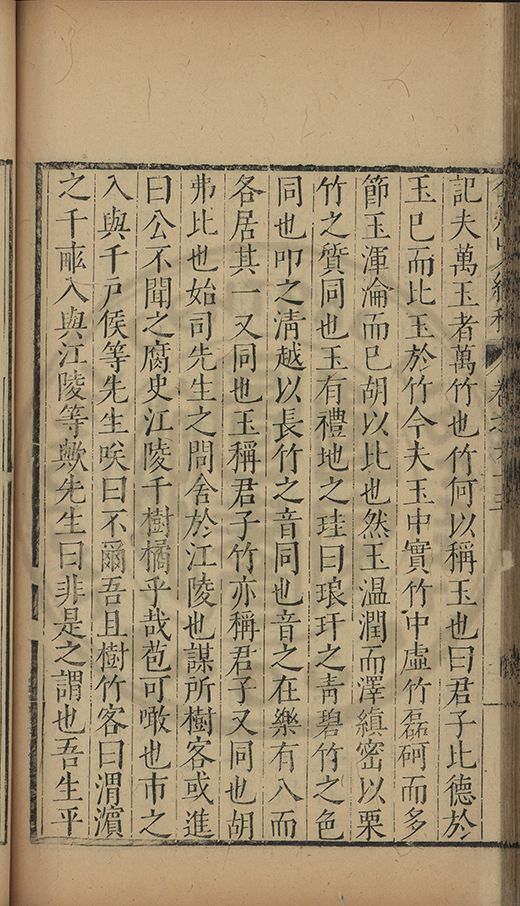 卷之六十五
記夫萬玉者萬竹也竹何以稱玉也曰君子比德於
玉已而比玉於竹今夫玉中實竹中虛竹磊砢而多
節玉渾淪而已胡以比也然玉温潤而澤縝密以栗
竹之質同也玉有禮地之珪曰琅玕之青碧竹之色
同也叩之清越以長竹之音同也音之在樂有八而
各居其一又同也玉稱君子竹亦稱君子又同也胡
弗比也始司先生之問舍於江陵也謀所樹客或進
曰公不聞之腐史江陵千樹橘乎哉苞可噉也市之
入與千戸侯等先生唉曰不爾吾且樹竹客曰渭濵
之千畝入與江陵等歟先生曰非是之謂也吾生平